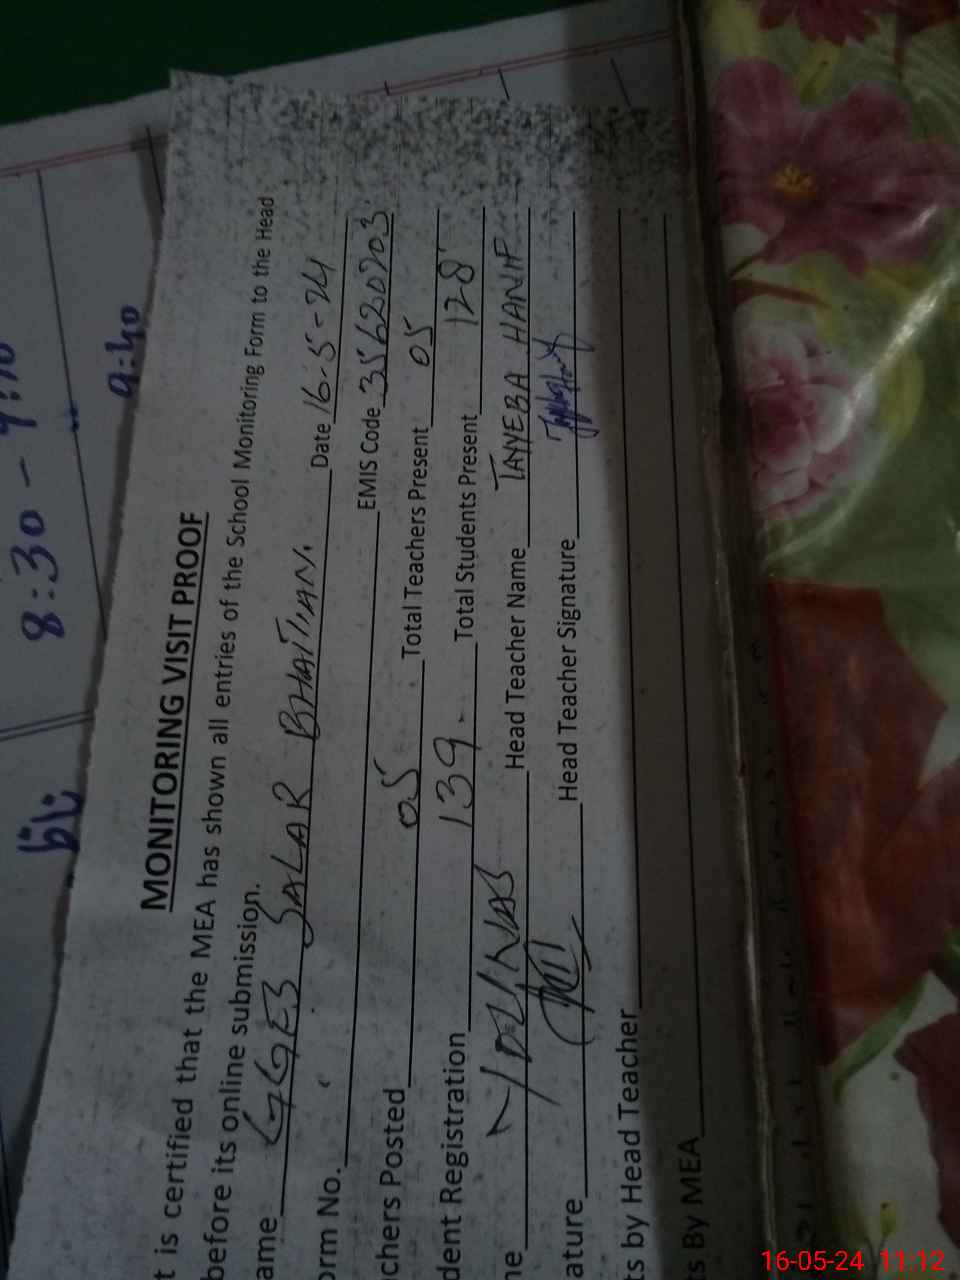 8:30 – 9:10
9:40
MONITORING VISIT PROOF
t is certified that the MEA has shown all entries of the School Monitoring Form to the Head
before its online submission.
ame GGES SALAR BHATTIAN. Date 16-5-24
orm No. EMIS Code 35620203
chers Posted 05 Total Teachers Present 05
dent Registration 139 Total Students Present 128
ne Head Teacher Name TAYYEBA HANIF
ature Head Teacher Signature
ts by Head Teacher
ts By MEA
16-05-24 11:12